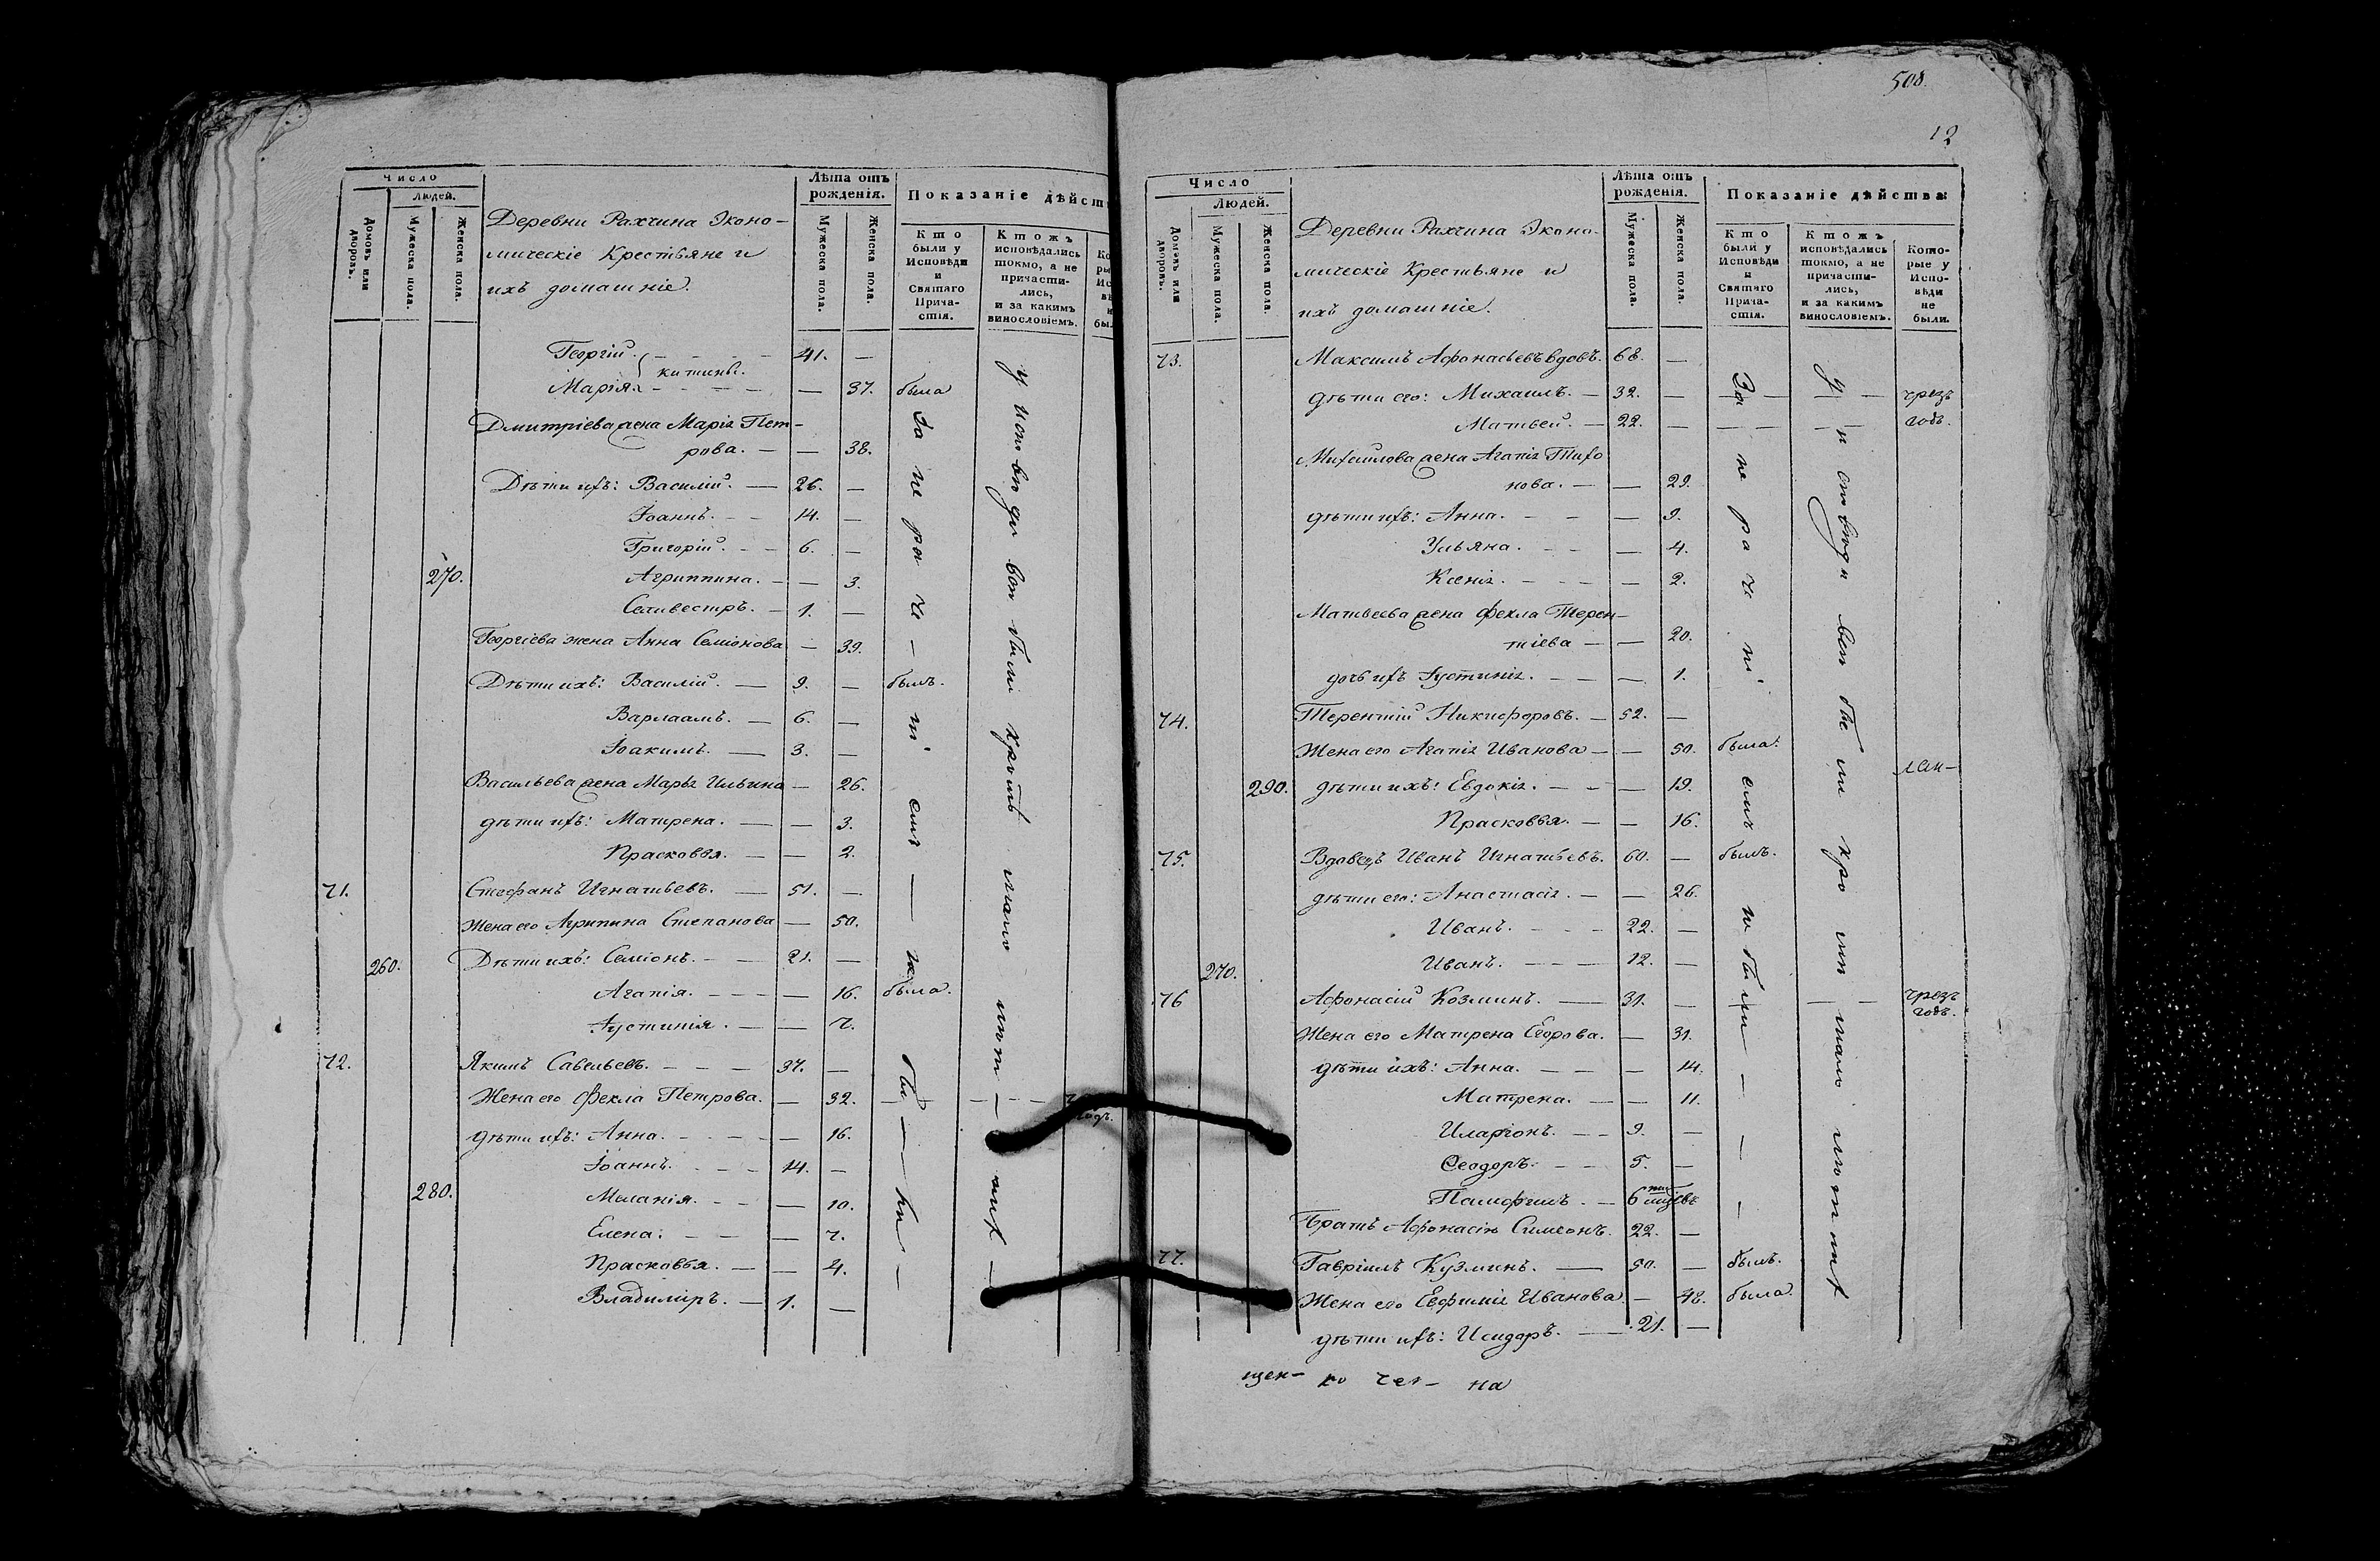 Число
Людей.
Домовъ или дворовъ.
Мужеска пола.
Женска пола.
Деревни Рахчина Эконо-
мическіе Крестьяне и
ихъ домашніе.
Лѣта отъ рожденія.
Мужеска пола.
Женска пола.
Показаніе дѣйст
Кто были у Исповѣди и Святаго Прича-стія.
Ктожъ исповѣдались токмо, а не причасти-лись, и за какимъ винословіемъ.
Георгій. 41. —
Марія. — 37. была
Дмитріева жена Марія Пет-
рова. — — 38.
Дѣти ихъ: Василій. — 26. —
Іоаннъ. 14. —
Григорій. 6. —
270. Агриппина. — 3.
Селивестръ. 1. —
Георгіева жена Анна Семіонова — 39.
Дѣти ихъ: Василій. — 9. — былъ.
Варлаамъ. — 6. —
Іоакимъ. — 3. —
Васильева жена Марья Ильина — 26.
дѣти ихъ: Матрена. — — 3.
Прасковья. — — 2.
71. Стефанъ Игнатьевъ. — 51. —
Жена его Агрипина Степанова — 50.
260. Дѣти ихъ: Семіонъ. — 21. —
Агапія. — 16. была.
Іустинія. — — 7.
72. Якимъ Савельевъ. 37. —
Жена его Фекла Петрова. — 32.
дѣти ихъ: Анна. — 16.
Іоаннъ. 14. —
280. Меланія. — 10.
Елена. — 7.
Прасковья. — — 4.
Владиміръ. — 1. —
508.
12
Число
Людей.
Домовъ или дворовъ.
Мужеска пола.
Женска пола.
Деревни Рахчина Эконо-
мическіе Крестьяне и
ихъ домашніе.
Лѣта отъ рожденія.
Мужеска пола.
Женска пола.
Показаніе дѣйства:
Кто были у Исповѣди и Святаго Прича-стія.
Ктожъ исповѣдались токмо, а не причасти-лись, и за какимъ винословіемъ.
Кото-рые у Испо-вѣди не были.
73. Максимъ Афонасьевъ вдовъ. 68. —
дѣти его: Михаилъ. — 32. — чрезъ
Матвей. — 22. — годъ.
Михайлова жена Агапія Тихо
нова. — — 29.
дѣти ихъ: Анна. — 9.
Ульяна. — 4.
Ксенія. — 2.
Матвеева жена Фекла Терен-
тіева — — 20.
дочь ихъ Іустинія. — 1.
74. Терентій Никифоровъ. — 52. —
Жена его Агапія Иванова — — 50. была.
290. дѣти ихъ: Евдокія. — 19.
Прасковья. — — 16.
75. Вдовецъ Иванъ Игнатьевъ. 60. — былъ.
дѣти его: Анастасія. — — 26.
Иванъ. 22. —
270. Иванъ. 12. —
76 Афонасій Козминъ. — 31. — чрезъ годъ.
Жена его Матрена Егорова. — 31.
дѣти ихъ: Анна. — 14.
Матрена. — — 11.
Иларіонъ. — 9. —
Ѳеодоръ. 5. —
Памфилъ. — 6
Братъ Афонасія Симеонъ. 22. —
77. Гавріилъ Кузминъ. — 50. — былъ.
Жена его Евфимія Иванова. — 48. была.
дѣти ихъ: Исидоръ. — 21. —